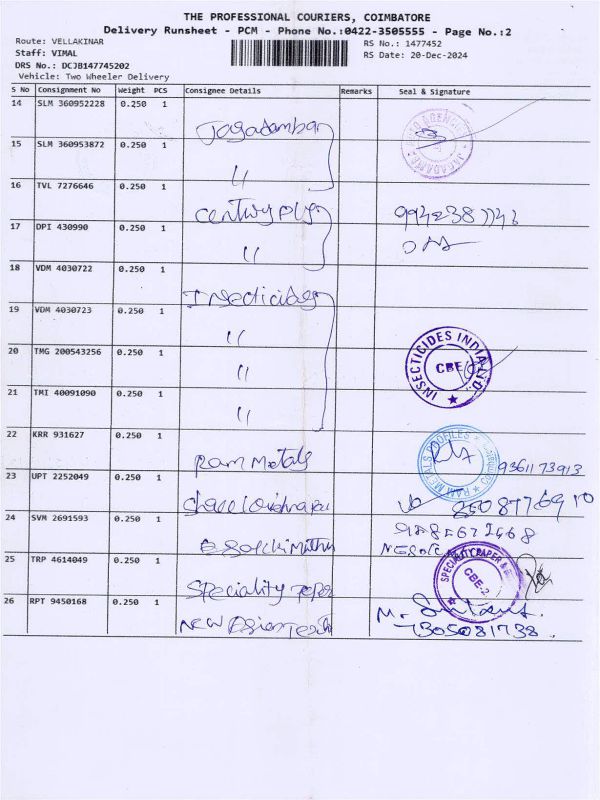 THE PROFESSIONAL COURIERS, COIMBATORE
Delivery Runsheet - PCM - Phone No.:0422-3505555 - Page No.:2
Route: VELLAKINAR
RS No.: 1477452
Staff: VIMAL
RS Date: 20-Dec-2024
DRS No.: DCJB147745202
Vehicle: Two Wheeler Delivery
S No Consignment No Weight PCS Consignee Details Remarks Seal & Signature
14 SLM 360952228 0.250 1 Jagadamba
15 SLM 360953872 0.250 1 〃
16 TVL 7276646 0.250 1 Century ply
17 DPI 430990 0.250 1 〃
18 VDM 4030722 0.250 1
19 VDM 4030723 0.250 1 〃
20 TMG 200543256 0.250 1 〃 INSECTICIDES INDIA CBE
21 TMI 40091090 0.250 1 〃
22 KRR 931627 0.250 1 Ram Metals RAM METALS PROFILES 9361173913
23 UPT 2252049 0.250 1
24 SVM 2691593 0.250 1
25 TRP 4614049 0.250 1 Speciality SPECIALITY PAPER & CBE-2
26 RPT 9450168 0.250 1 New Asian M.
7305081738